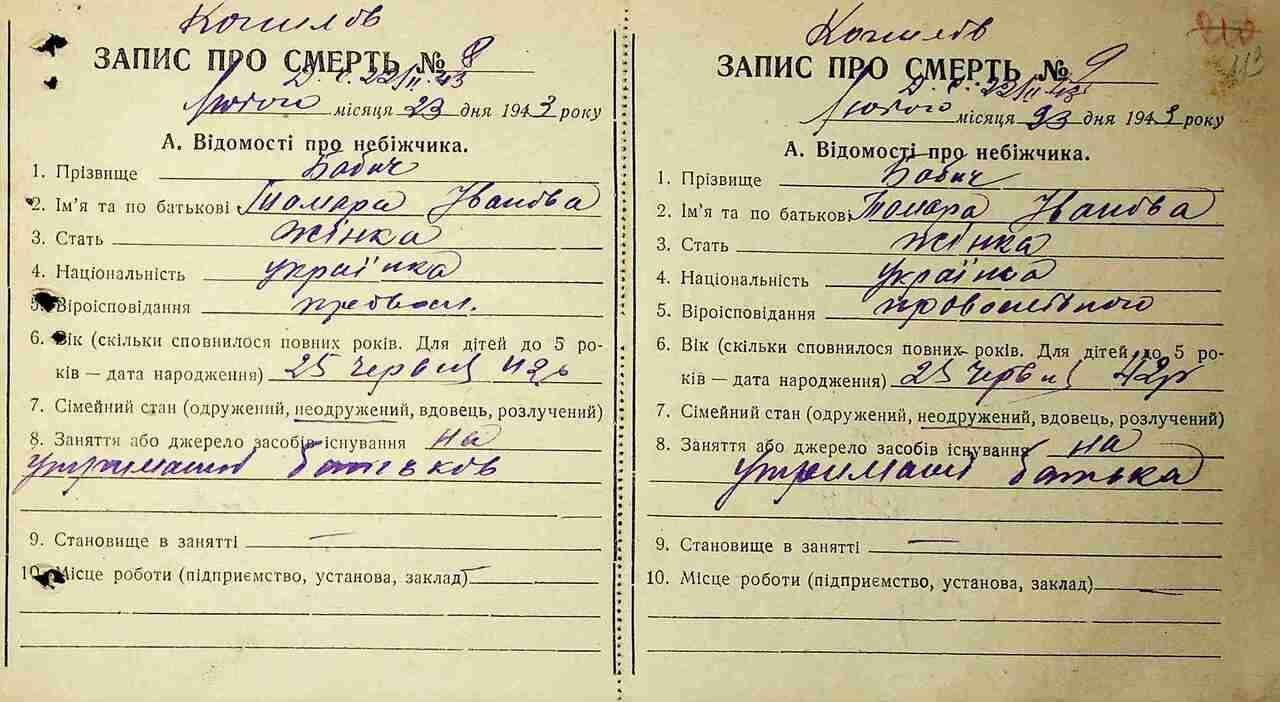 Копилов
ЗАПИС ПРО СМЕРТЬ № 8
Д. с. 22/II. 43
Лютого місяця 23 дня 1943 року
А. Відомості про небіжчика.
1. Прізвище Бабич
2. Ім'я та по батькові Тамара Іванівна
3. Стать жінка
4. Національність українка
5. Віроісповідання
6. Вік (скільки сповнилося повних років. Для дітей до 5 ро-
ків — дата народження) 25 червня 42р
7. Сімейний стан (одружений, неодружений, вдовець, розлучений)
8. Заняття або джерело засобів існування на
утриманні батьков
9. Становище в занятті —
10. Місце роботи (підприємство, установа, заклад) —
Копилов
ЗАПИС ПРО СМЕРТЬ № 9
Д. с. 22/II 43
Лютого місяця 23 дня 1943 року
А. Відомості про небіжчика.
1. Прізвище Бабич
2. Ім'я та по батькові Тамара Іванівна
3. Стать жінка
4. Національність українка
5. Віроісповідання
6. Вік (скільки сповнилося повних років. Для дітей до 5 ро-
ків — дата народження) 25 червня 42р
7. Сімейний стан (одружений, неодружений, вдовець, розлучений)
8. Заняття або джерело засобів існування на
утриманні батька
9. Становище в занятті —
10. Місце роботи (підприємство, установа, заклад) —